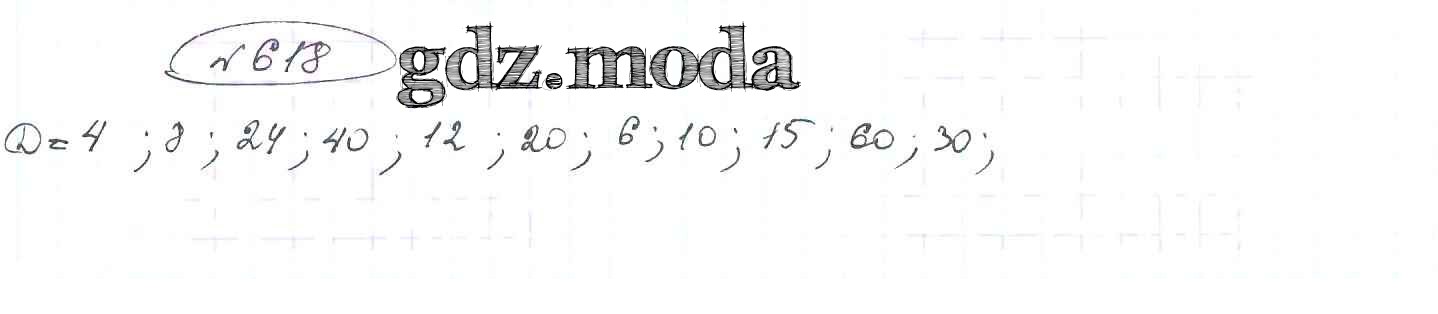 №618 gdz.moda
D = 4 ; 8 ; 24 ; 40 ; 12 ; 20 ; 6 ; 10 ; 15 ; 60 ; 30 ;